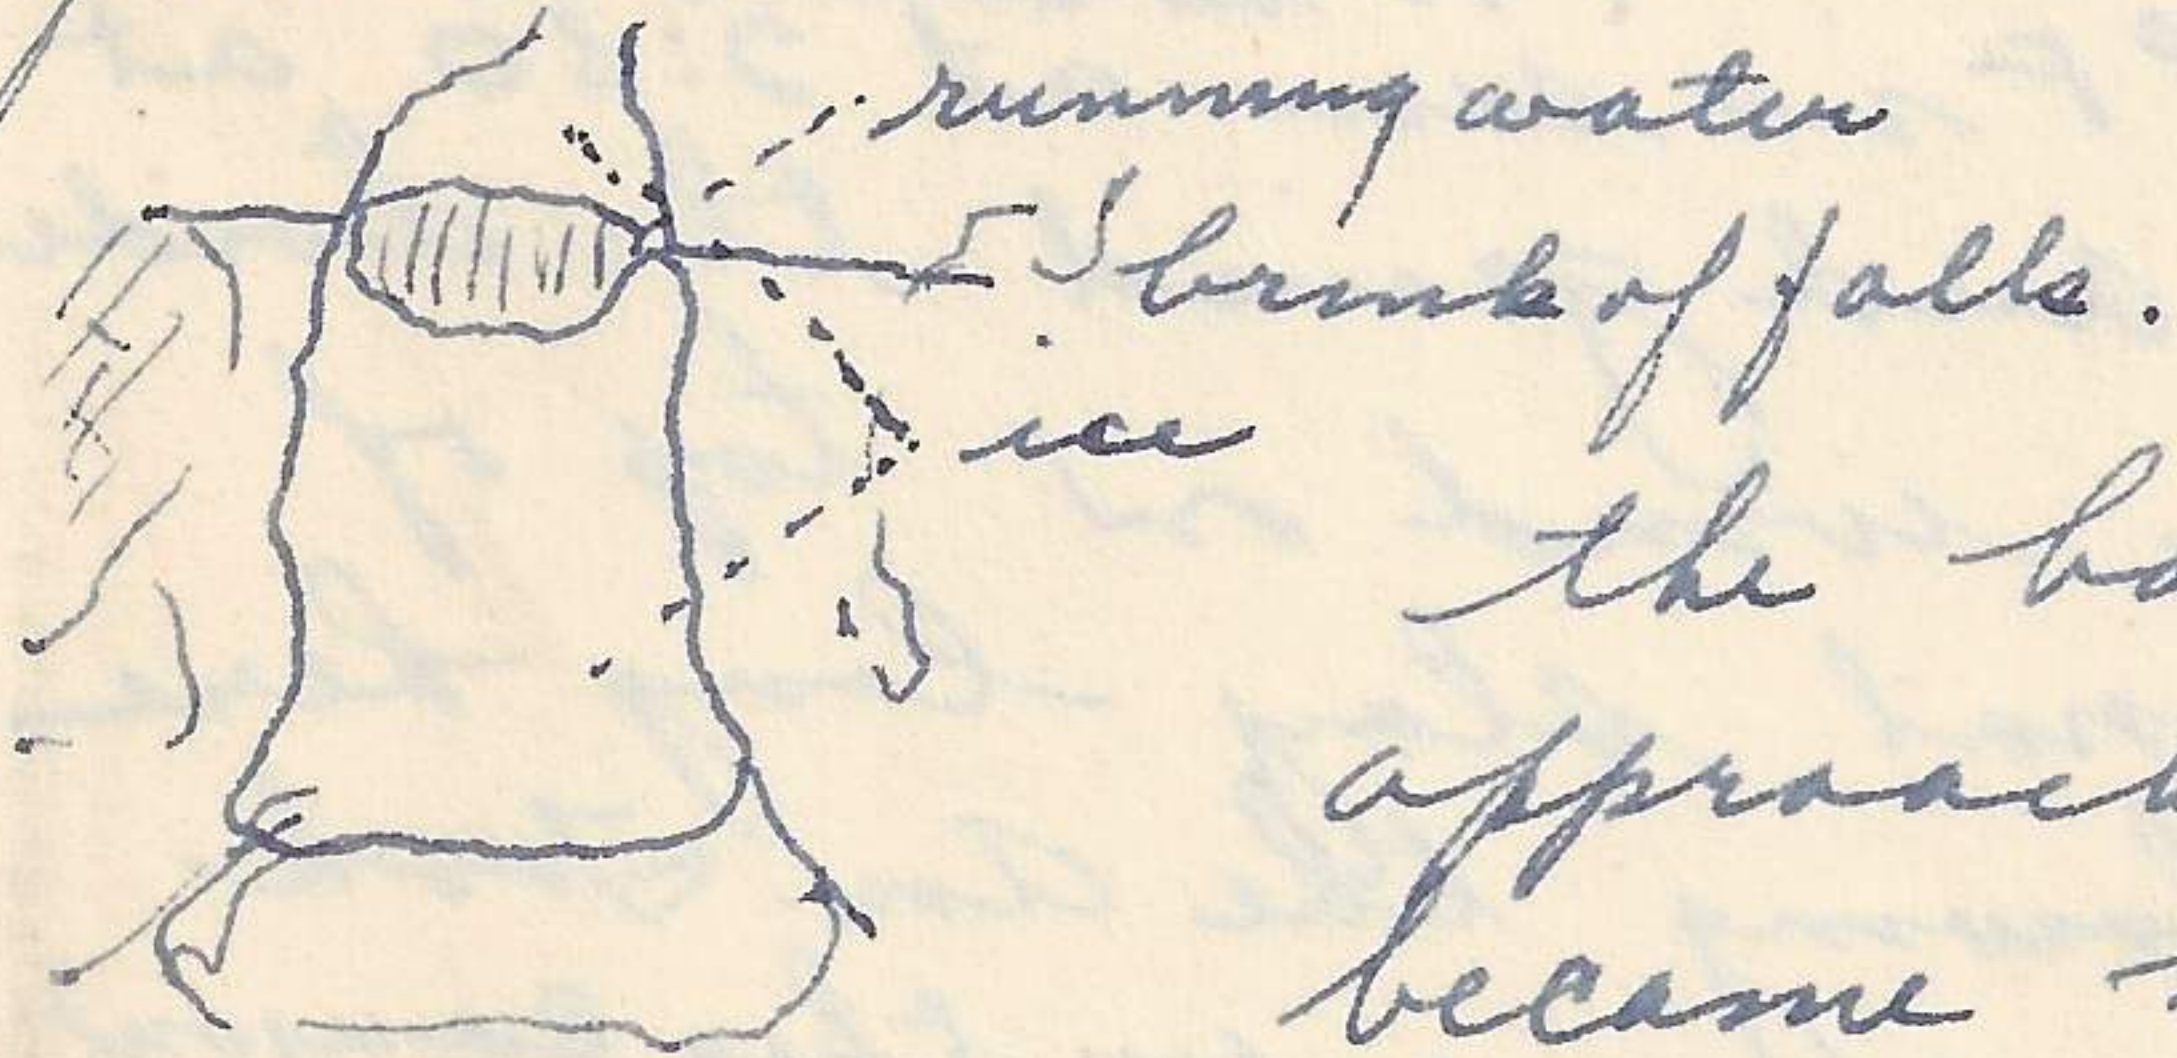 running water
brink of falls.
ice
the
approach
became